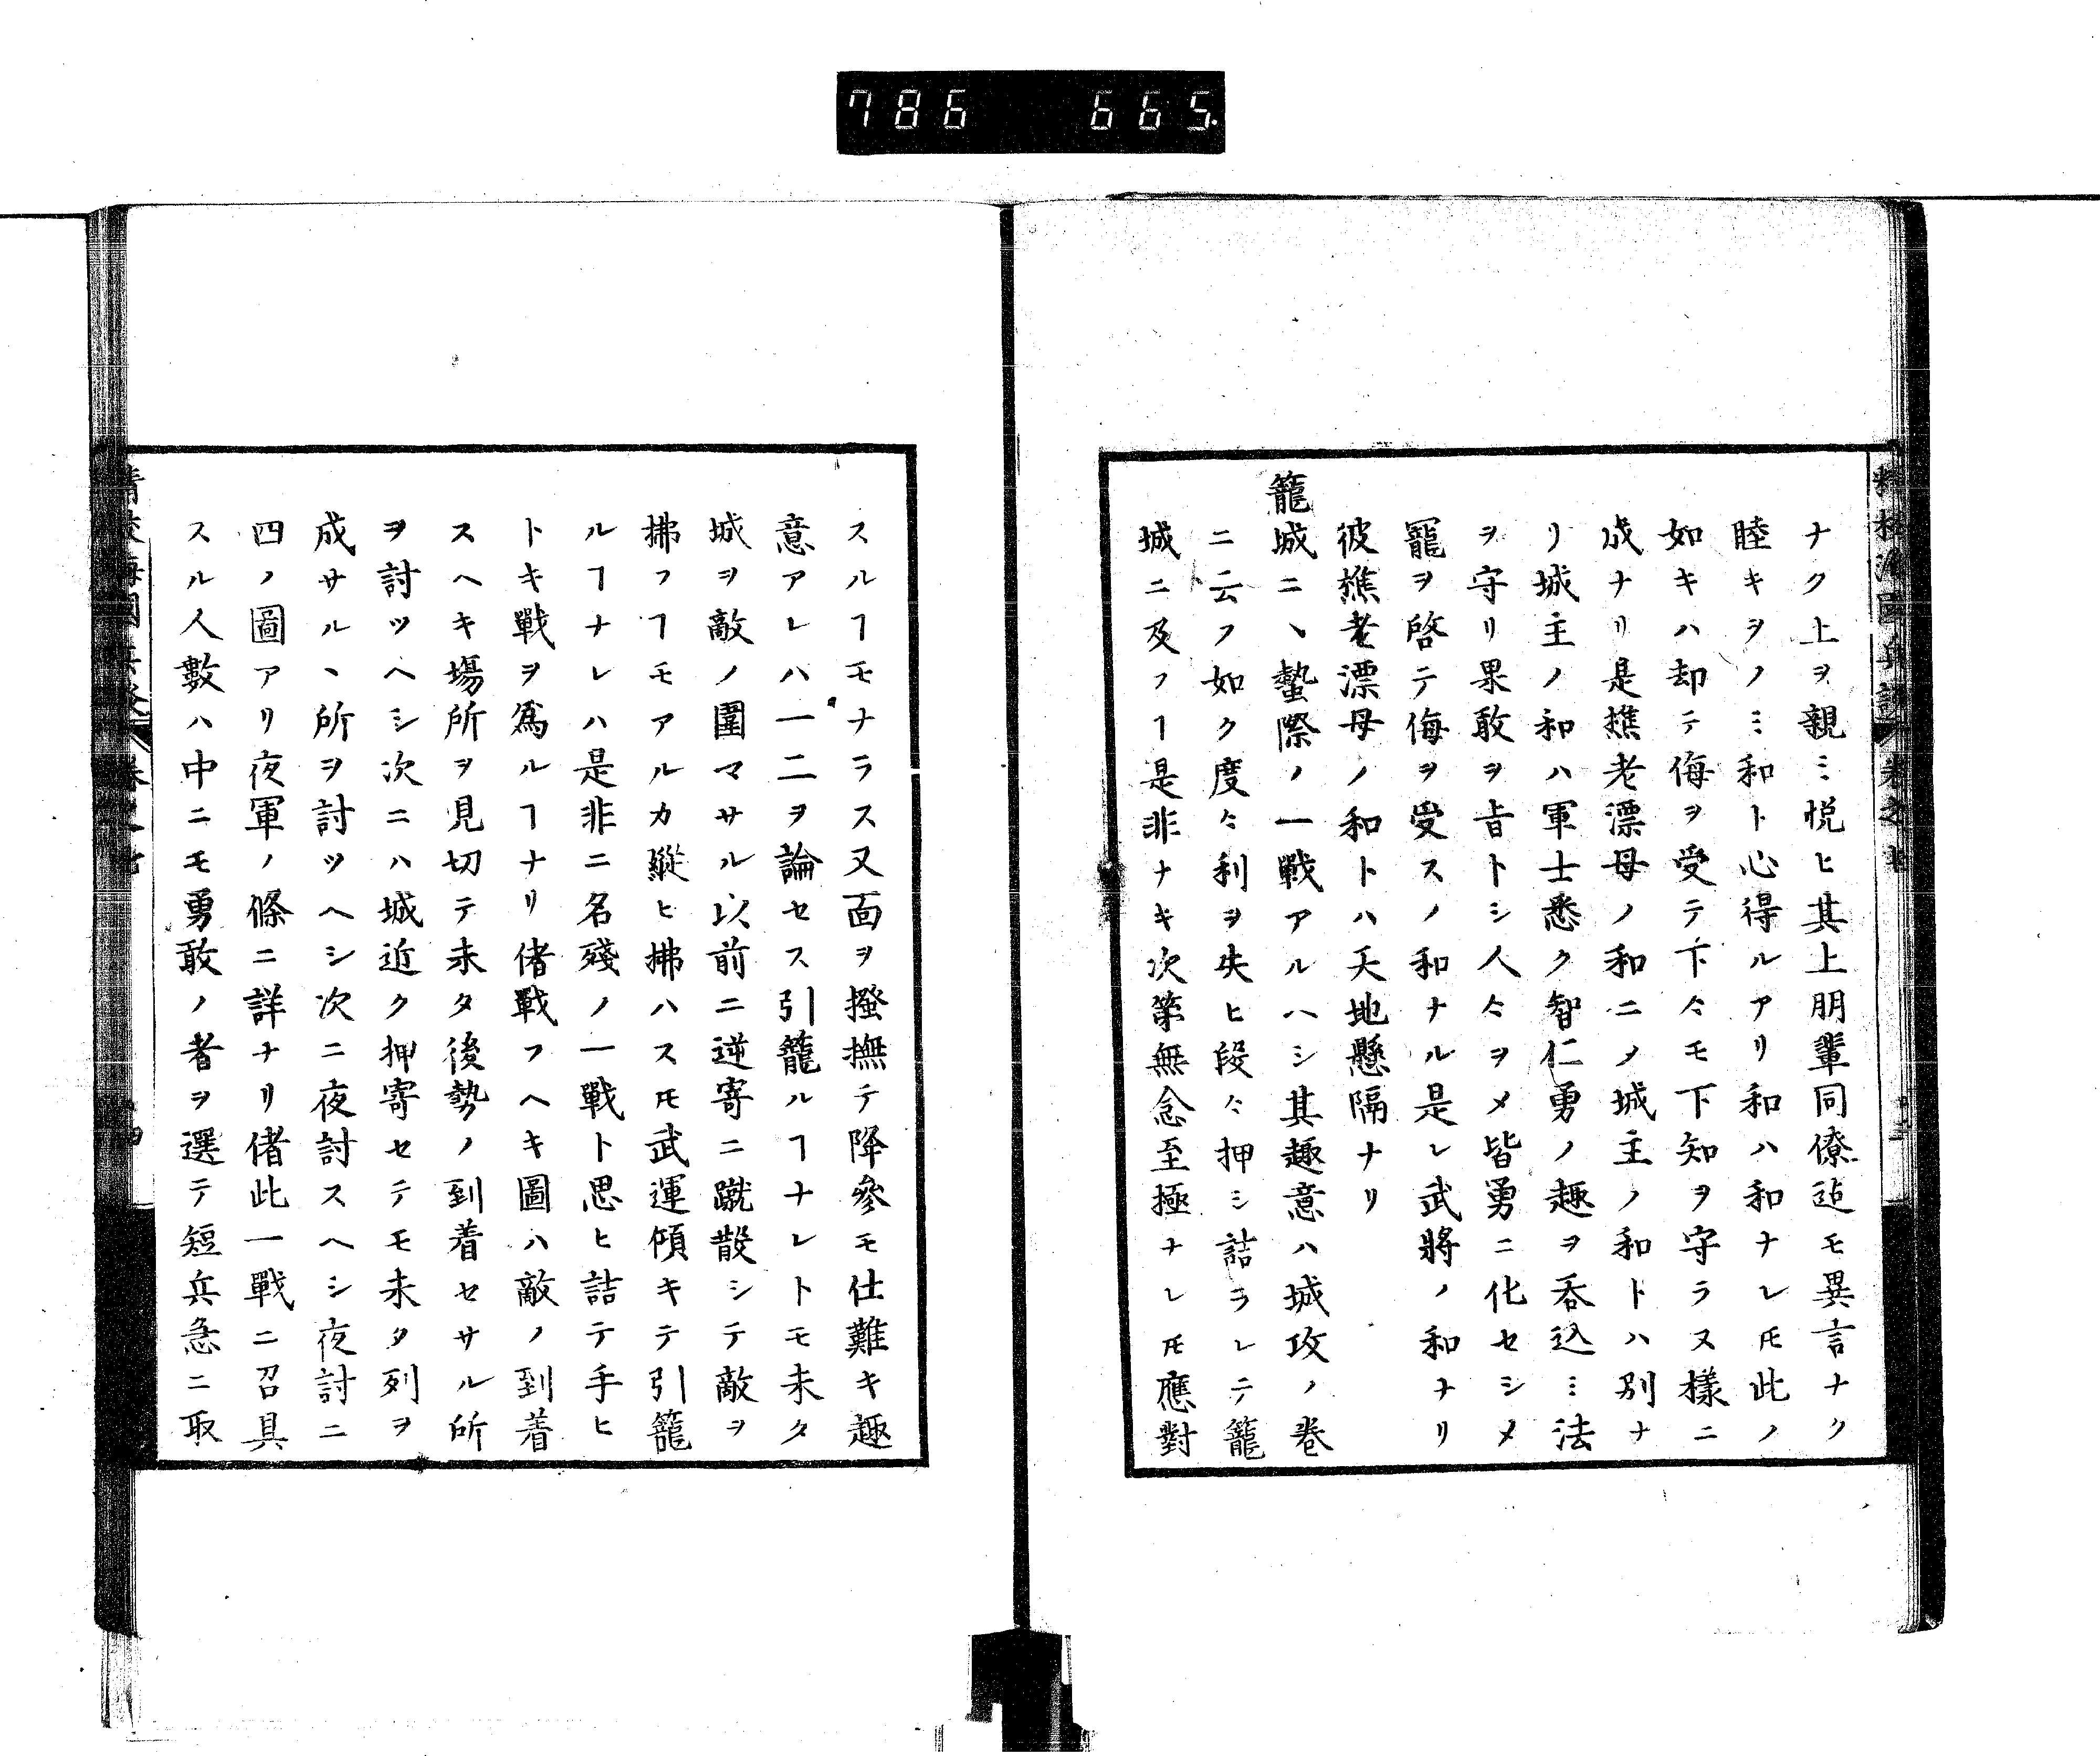 786 665
ナク上ヲ親ミ悦ヒ其上朋輩同僚迠モ異言ナク
睦キヲノミ和ト心得ルアリ和ハ和ナレ𪜈此ノ
如キハ却テ侮ヲ受テ下々モ下知ヲ守ラヌ樣ニ
成ナリ是樵老漂母ノ和ニメ城主ノ和トハ別ナ
リ城主ノ和ハ軍士悉ク智仁勇ノ趣ヲ呑込ミ法
ヲ守リ果敢ヲ旨トシ人々ヲメ皆勇ニ化セシメ
寵ヲ啓テ侮ヲ受スノ和ナル是レ武將ノ和ナリ
彼樵老漂母ノ和トハ天地懸隔ナリ
籠城ニヽ蟄際ノ一戰アルヘシ其趣意ハ城攻ノ巻
ニ云フ如ク度々利ヲ失ヒ段々押シ詰ラレテ籠
城ニ及フヿ是非ナキ次第無念至極ナレ𪜈應對
スルヿモナラス又面ヲ撥撫テ降參モ仕難キ趣
意アレハ一二ヲ論セス引籠ルヿナレトモ未タ
城ヲ敵ノ圍マサル以前ニ逆寄ニ蹴散シテ敵ヲ
拂フヿモアルカ縱ヒ拂ハス𪜈武運傾キテ引籠
ルヿナレハ是非ニ名殘ノ一戰ト思ヒ詰テ手ヒ
トキ戰ヲ爲ルヿナリ偖戰フヘキ圖ハ敵ノ到着
スヘキ場所ヲ見切テ未タ後勢ノ到着セサル所
ヲ討ツヘシ次ニハ城近ク押寄セテモ未タ列ヲ
成サルヽ所ヲ討ツヘシ次ニ夜討スヘシ夜討ニ
四ノ圖アリ夜軍ノ條ニ詳ナリ偖此一戰ニ召具
スル人數ハ中ニモ勇敢ノ者ヲ選テ短兵急ニ取